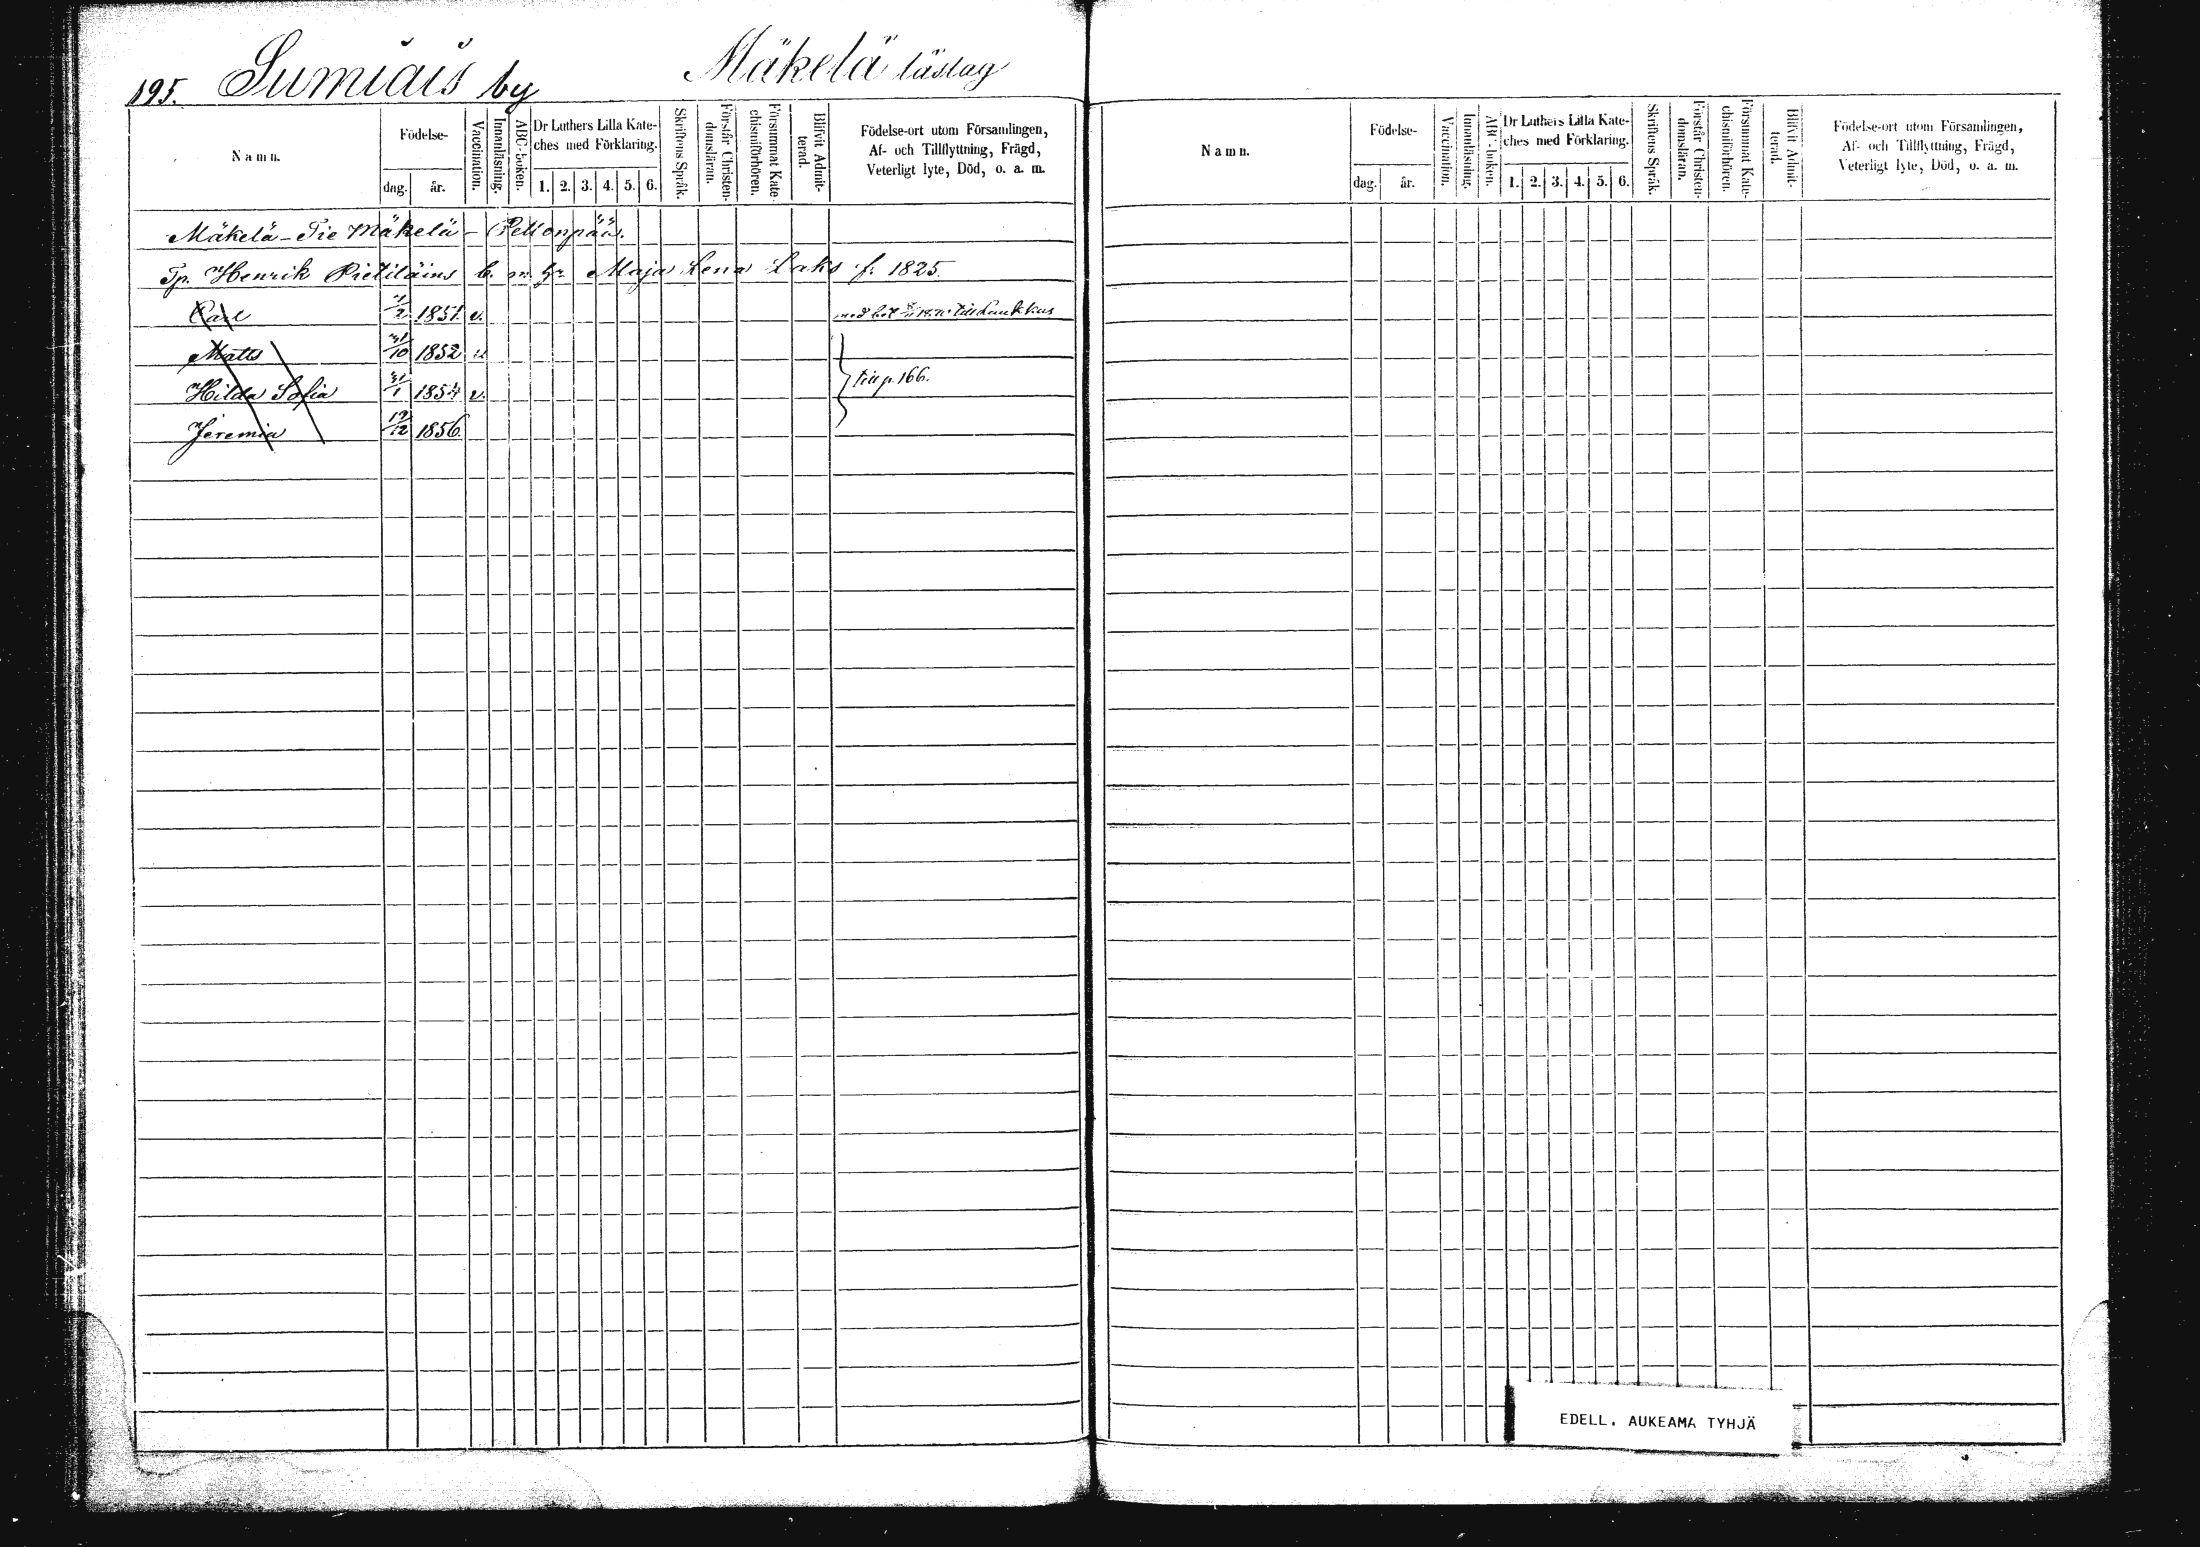 195. Sumiais by Mäkelä läslag
Namn.
Födelse-
dag. år.
Vaccination.
Innanläsning.
ABC-boken.
Dr Luthers Lilla Kate-
ches med Förklaring.
1. 2. 3. 4. 5. 6.
Skriftens Språk.
Förstår Christen-
domsläran.
Försummat Kate-
chismiförhören.
Blifvit Admit-
terad.
Födelse-ort utom Församlingen,
Af- och Tillflyttning, Frägd,
Veterligt lyte, Död, o. a. m.
Mäkelä - Tie Mäkelä - (Pellonpää.
Tp. Henrik Pietiläins b. m. hr. Maja Lena Laks f. 1825.
Carl 1851. v. med bet till
Matts 31/10 1852 v.
Hilda Sofia 31/1 1854 v. till p. 166.
Jeremia 12/12 1856.
Namn.
Födelse-
dag. år.
Vaccination.
Innanläsning.
ABC-boken.
Dr Luthers Lilla Kate-
ches med Förklaring.
1. 2. 3. 4. 5. 6.
Skriftens Språk.
Förstår Christen-
domsläran.
Försummat Kate-
chismiförhören.
Blifvit Admit-
terad.
Födelse-ort utom Församlingen,
Af- och Tillflyttning, Frägd,
Veterligt lyte, Död, o. a. m.
EDELL. AUKEAMA TYHJÄ